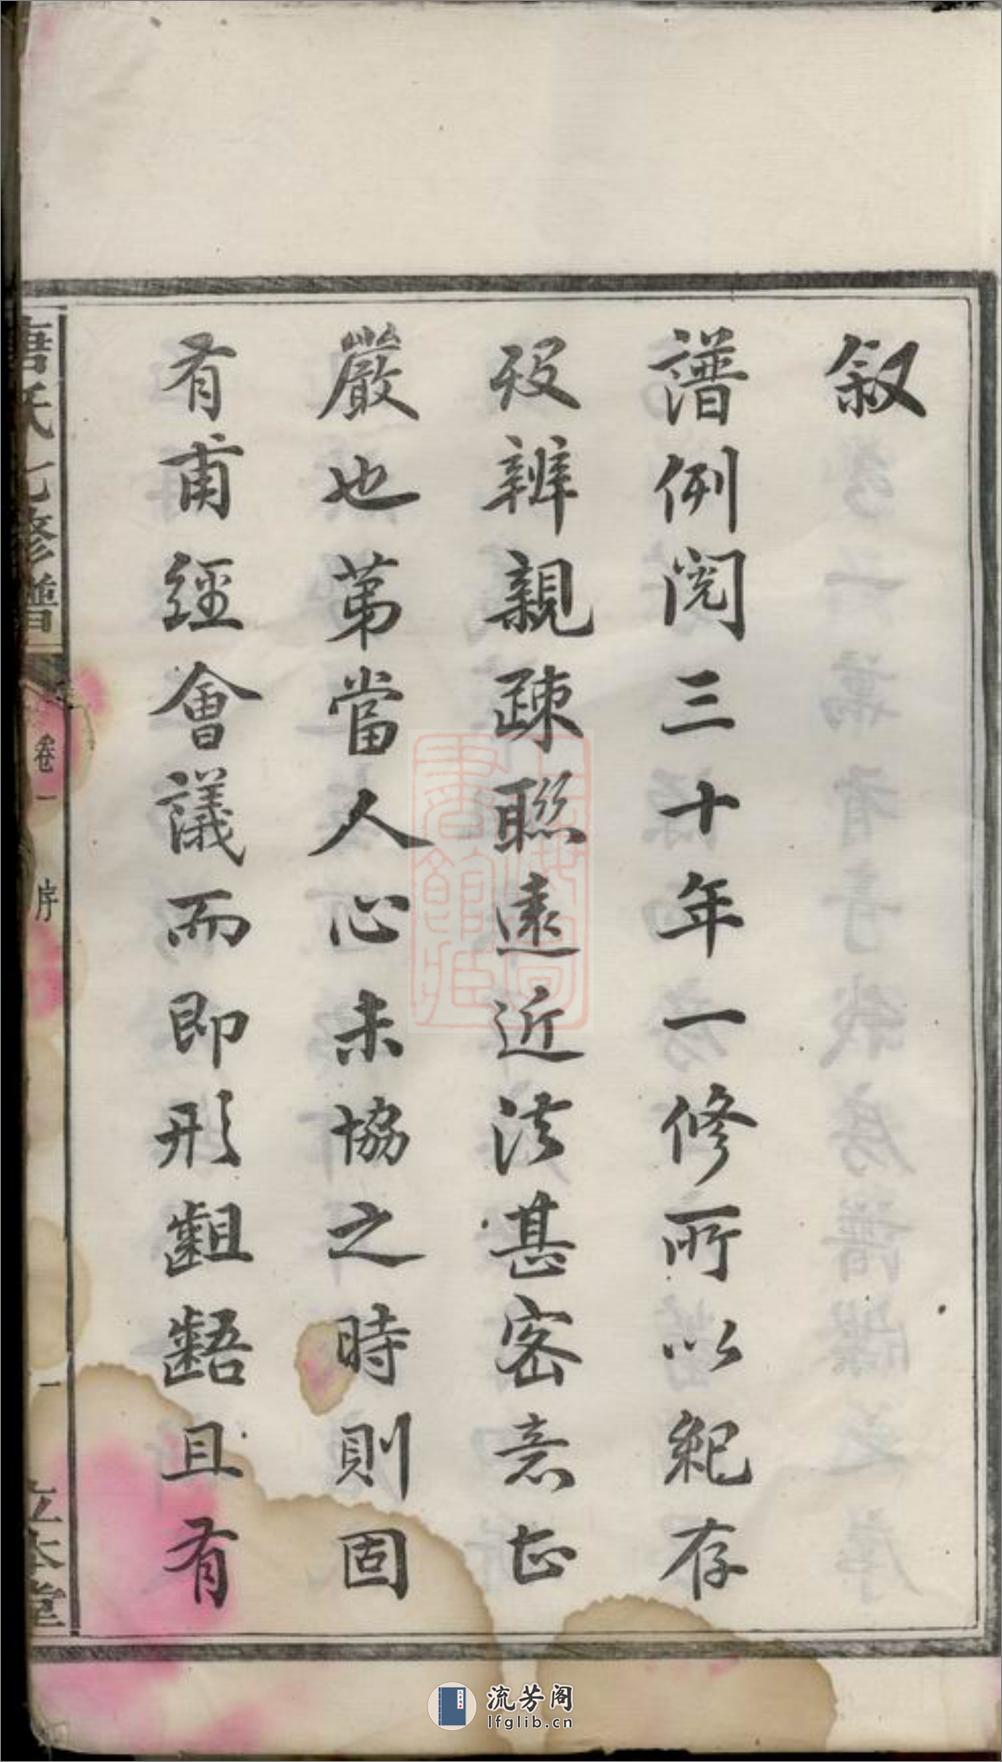 叙
譜例閱三十年一修所以紀存
歿辨親疎聯遠近法甚密意甚
嚴也第當人心未協之時則固
有甫經會議而即形齟齬且有
唐氏七修譜
卷一
序
一
立本堂
流芳阁
lfglib.cn